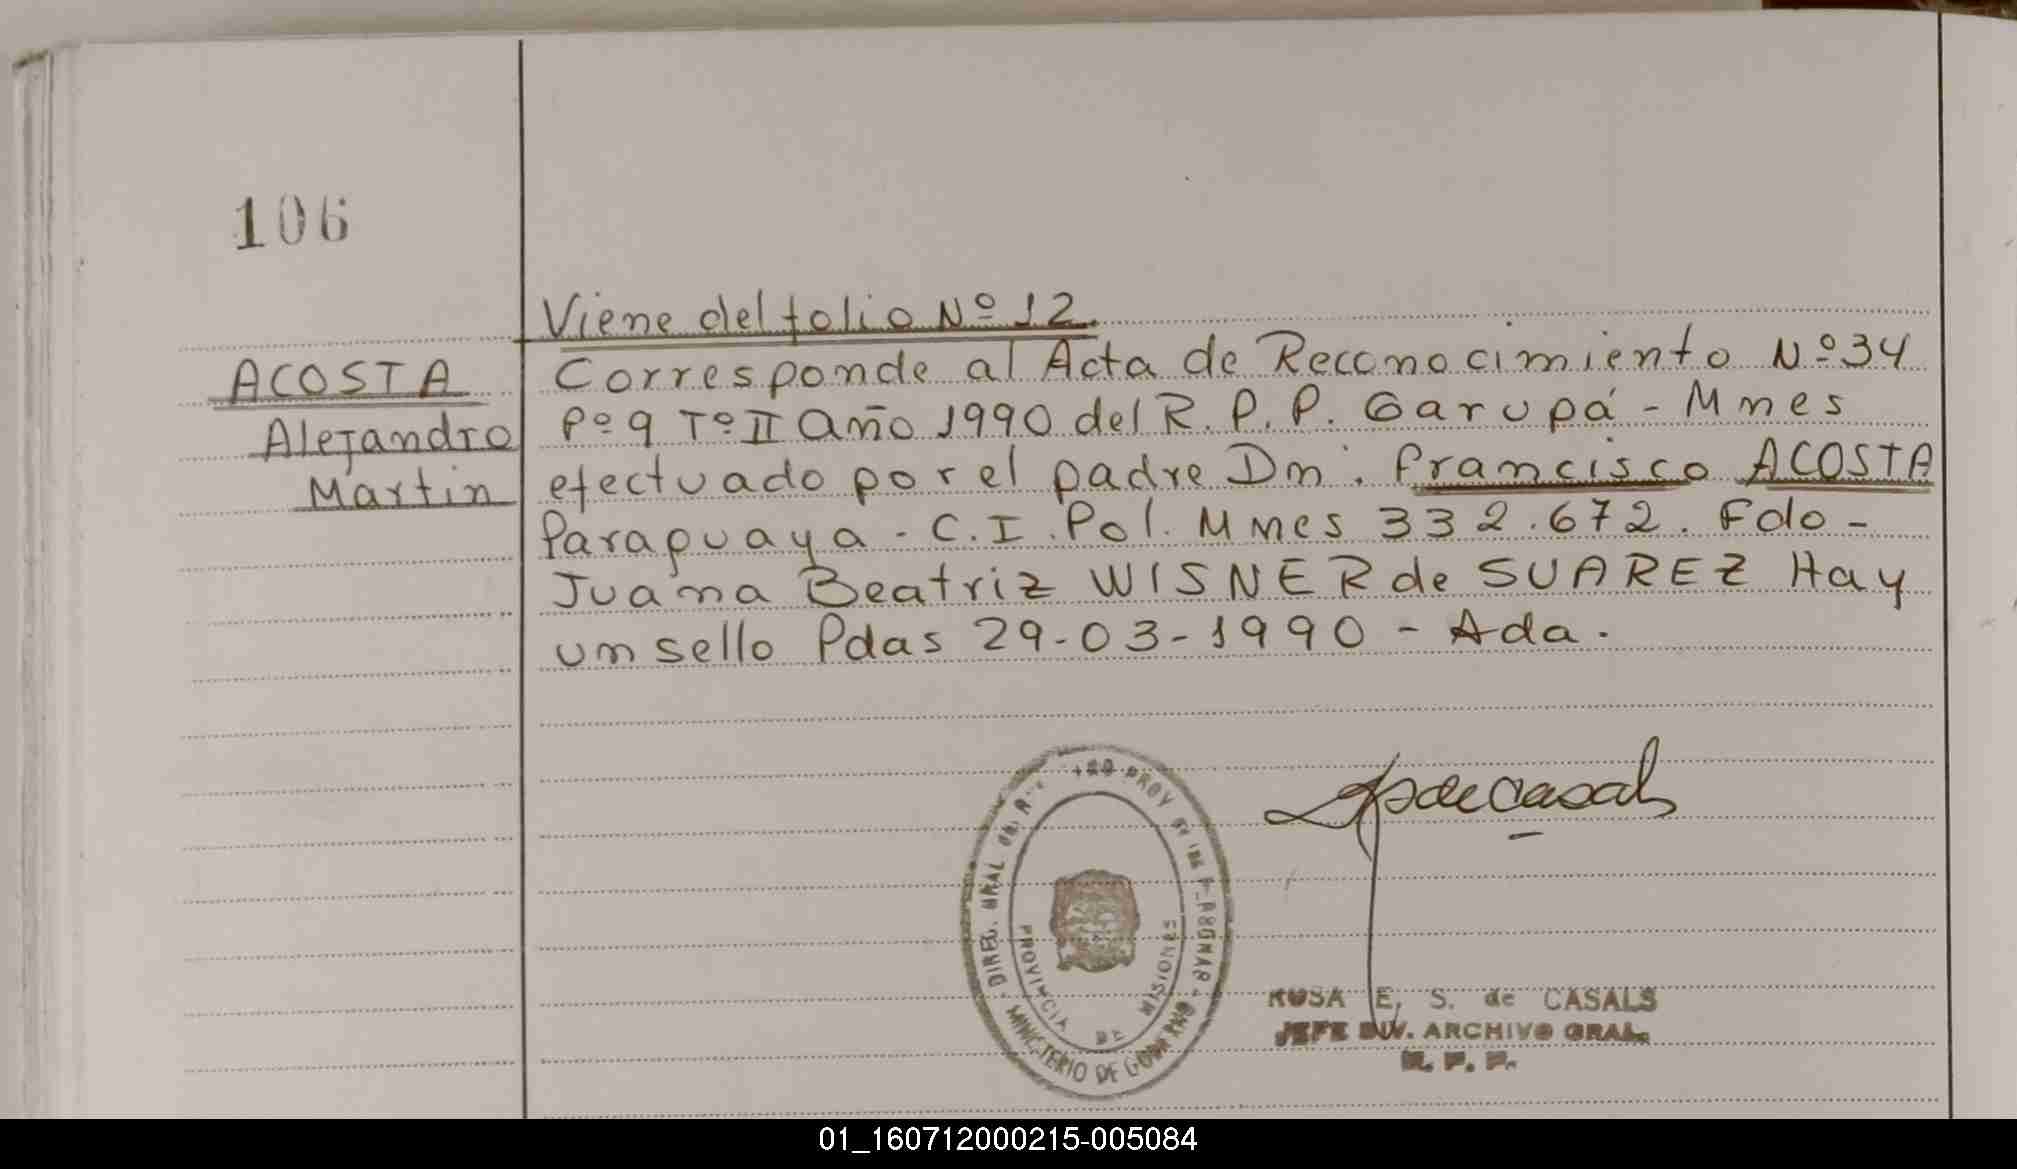 106
Viene del folio Nº 12.
ACOSTA
Alejandro
Martin
Corresponde al Acta de Reconocimiento Nº 34
Fº 9 Tº II año 1990 del R. P. P. Garupá - Mnes
efectuado por el padre Dn. Francisco ACOSTA
Paraguaya - C. I. Pol. Mnes 332.672. Fdo -
Juana Beatriz WISNER de SUAREZ Hay
un sello Pdas 29-03-1990 - Ada.
de Casals
PROVINCIA DE MISIONES
MINISTERIO DE GOBIERNO
ROSA E. S. de CASALS
JEFE DIV. ARCHIVO GRAL.
R. P. P.
01_160712000215-005084